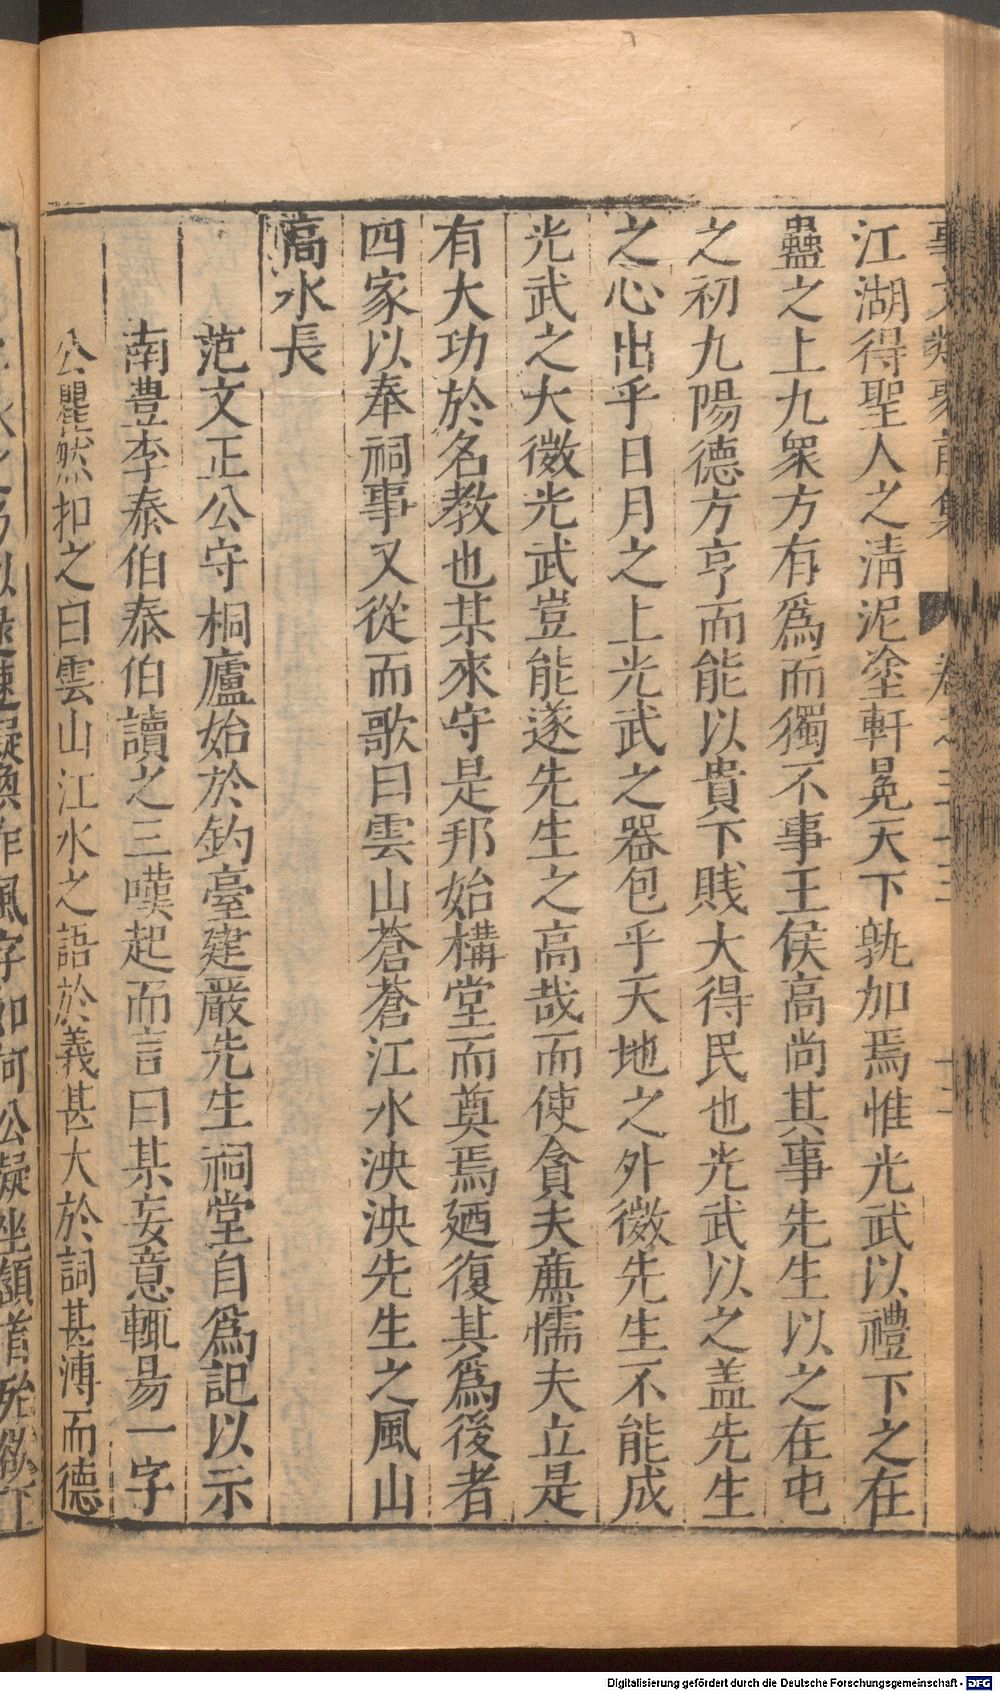 事文類聚前集　卷之三十三　十二
江湖得聖人之淸泥塗軒冕天下孰加焉惟光武以禮下之在
蠱之上九衆方有爲而獨不事王侯高尚其事先生以之在屯
之初九陽德方亨而能以貴下賤大得民也光武以之盖先生
之心出乎日月之上光武之器包乎天地之外微先生不能成
光武之大微光武豈能遂先生之高哉而使貪夫亷懦夫立是
有大功於名教也某來守是邦始構堂而奠焉廼復其爲後者
四家以奉祠事又從而歌曰雲山蒼蒼江水泱泱先生之風山
高水長
范文正公守桐廬始於釣臺建嚴先生祠堂自爲記以示
南豊李泰伯泰伯讀之三嘆起而言曰某妄意輒易一字
公瞿然扣之曰雲山江水之語於義甚大於詞甚溥而德
Digitalisierung gefördert durch die Deutsche Forschungsgemeinschaft - DFG